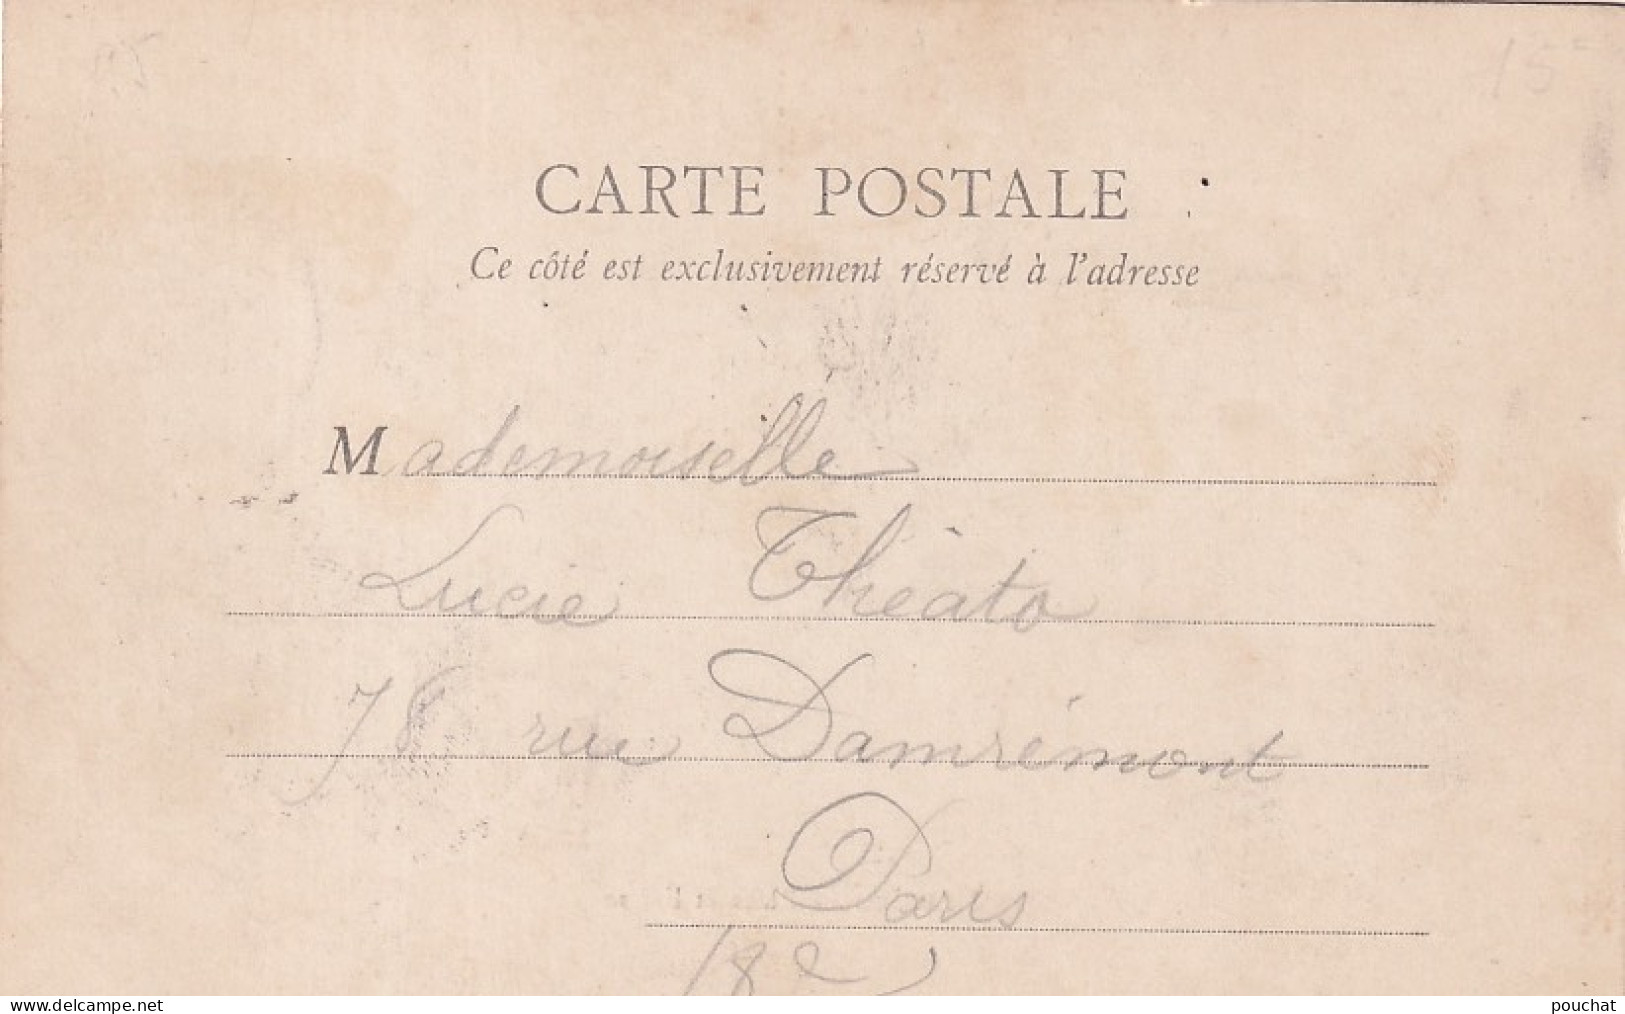 15
CARTE POSTALE
Ce côté est exclusivement réservé à l'adresse
Mademoiselle
Lucie Théato
76 rue Damrémont
Paris
18e
delcampe.net
pouchat